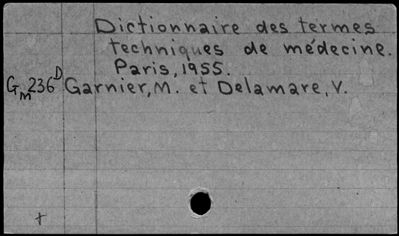 Dictionnaire des termes
techniques de médecine.
Paris, 1955.
GM 236D Garnier, M. et Delamare, V.
+